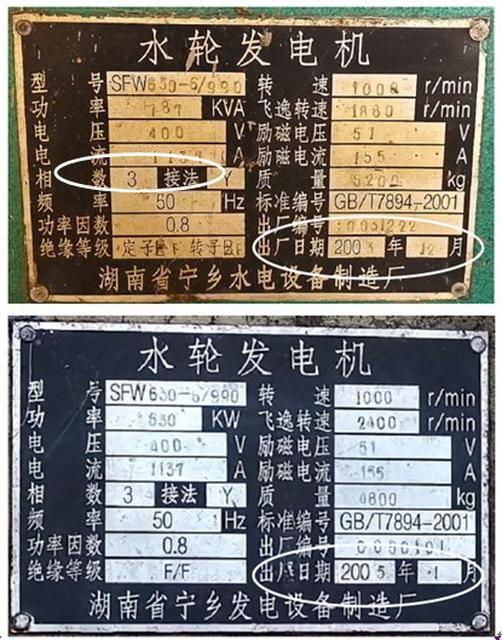 水轮发电机
型 号 SFW630-6/990 转 速 1000 r/min
功 率 787 KVA 飞逸转速 1880 r/min
电 压 400 V 励磁电压 51 V
电 流 1137 A 励磁电流 155 A
相 数 3 接法 Y 质 量 5200 kg
频 率 50 Hz 标准编号 GB/T7894-2001
功率因数 0.8 出厂编号 031222
绝缘等级 定子 F 转子 F 出厂日期 2003 年 12 月
湖南省宁乡水电设备制造厂
水轮发电机
型 号 SFW630-6/990 转 速 1000 r/min
功 率 630 KW 飞逸转速 2400 r/min
电 压 400 V 励磁电压 51 V
电 流 1137 A 励磁电流 155 A
相 数 3 接法 Y 质 量 4800 kg
频 率 50 Hz 标准编号 GB/T7894-2001
功率因数 0.8 出厂编号 050101
绝缘等级 F/F 出厂日期 2005 年 1 月
湖南省宁乡发电设备制造厂